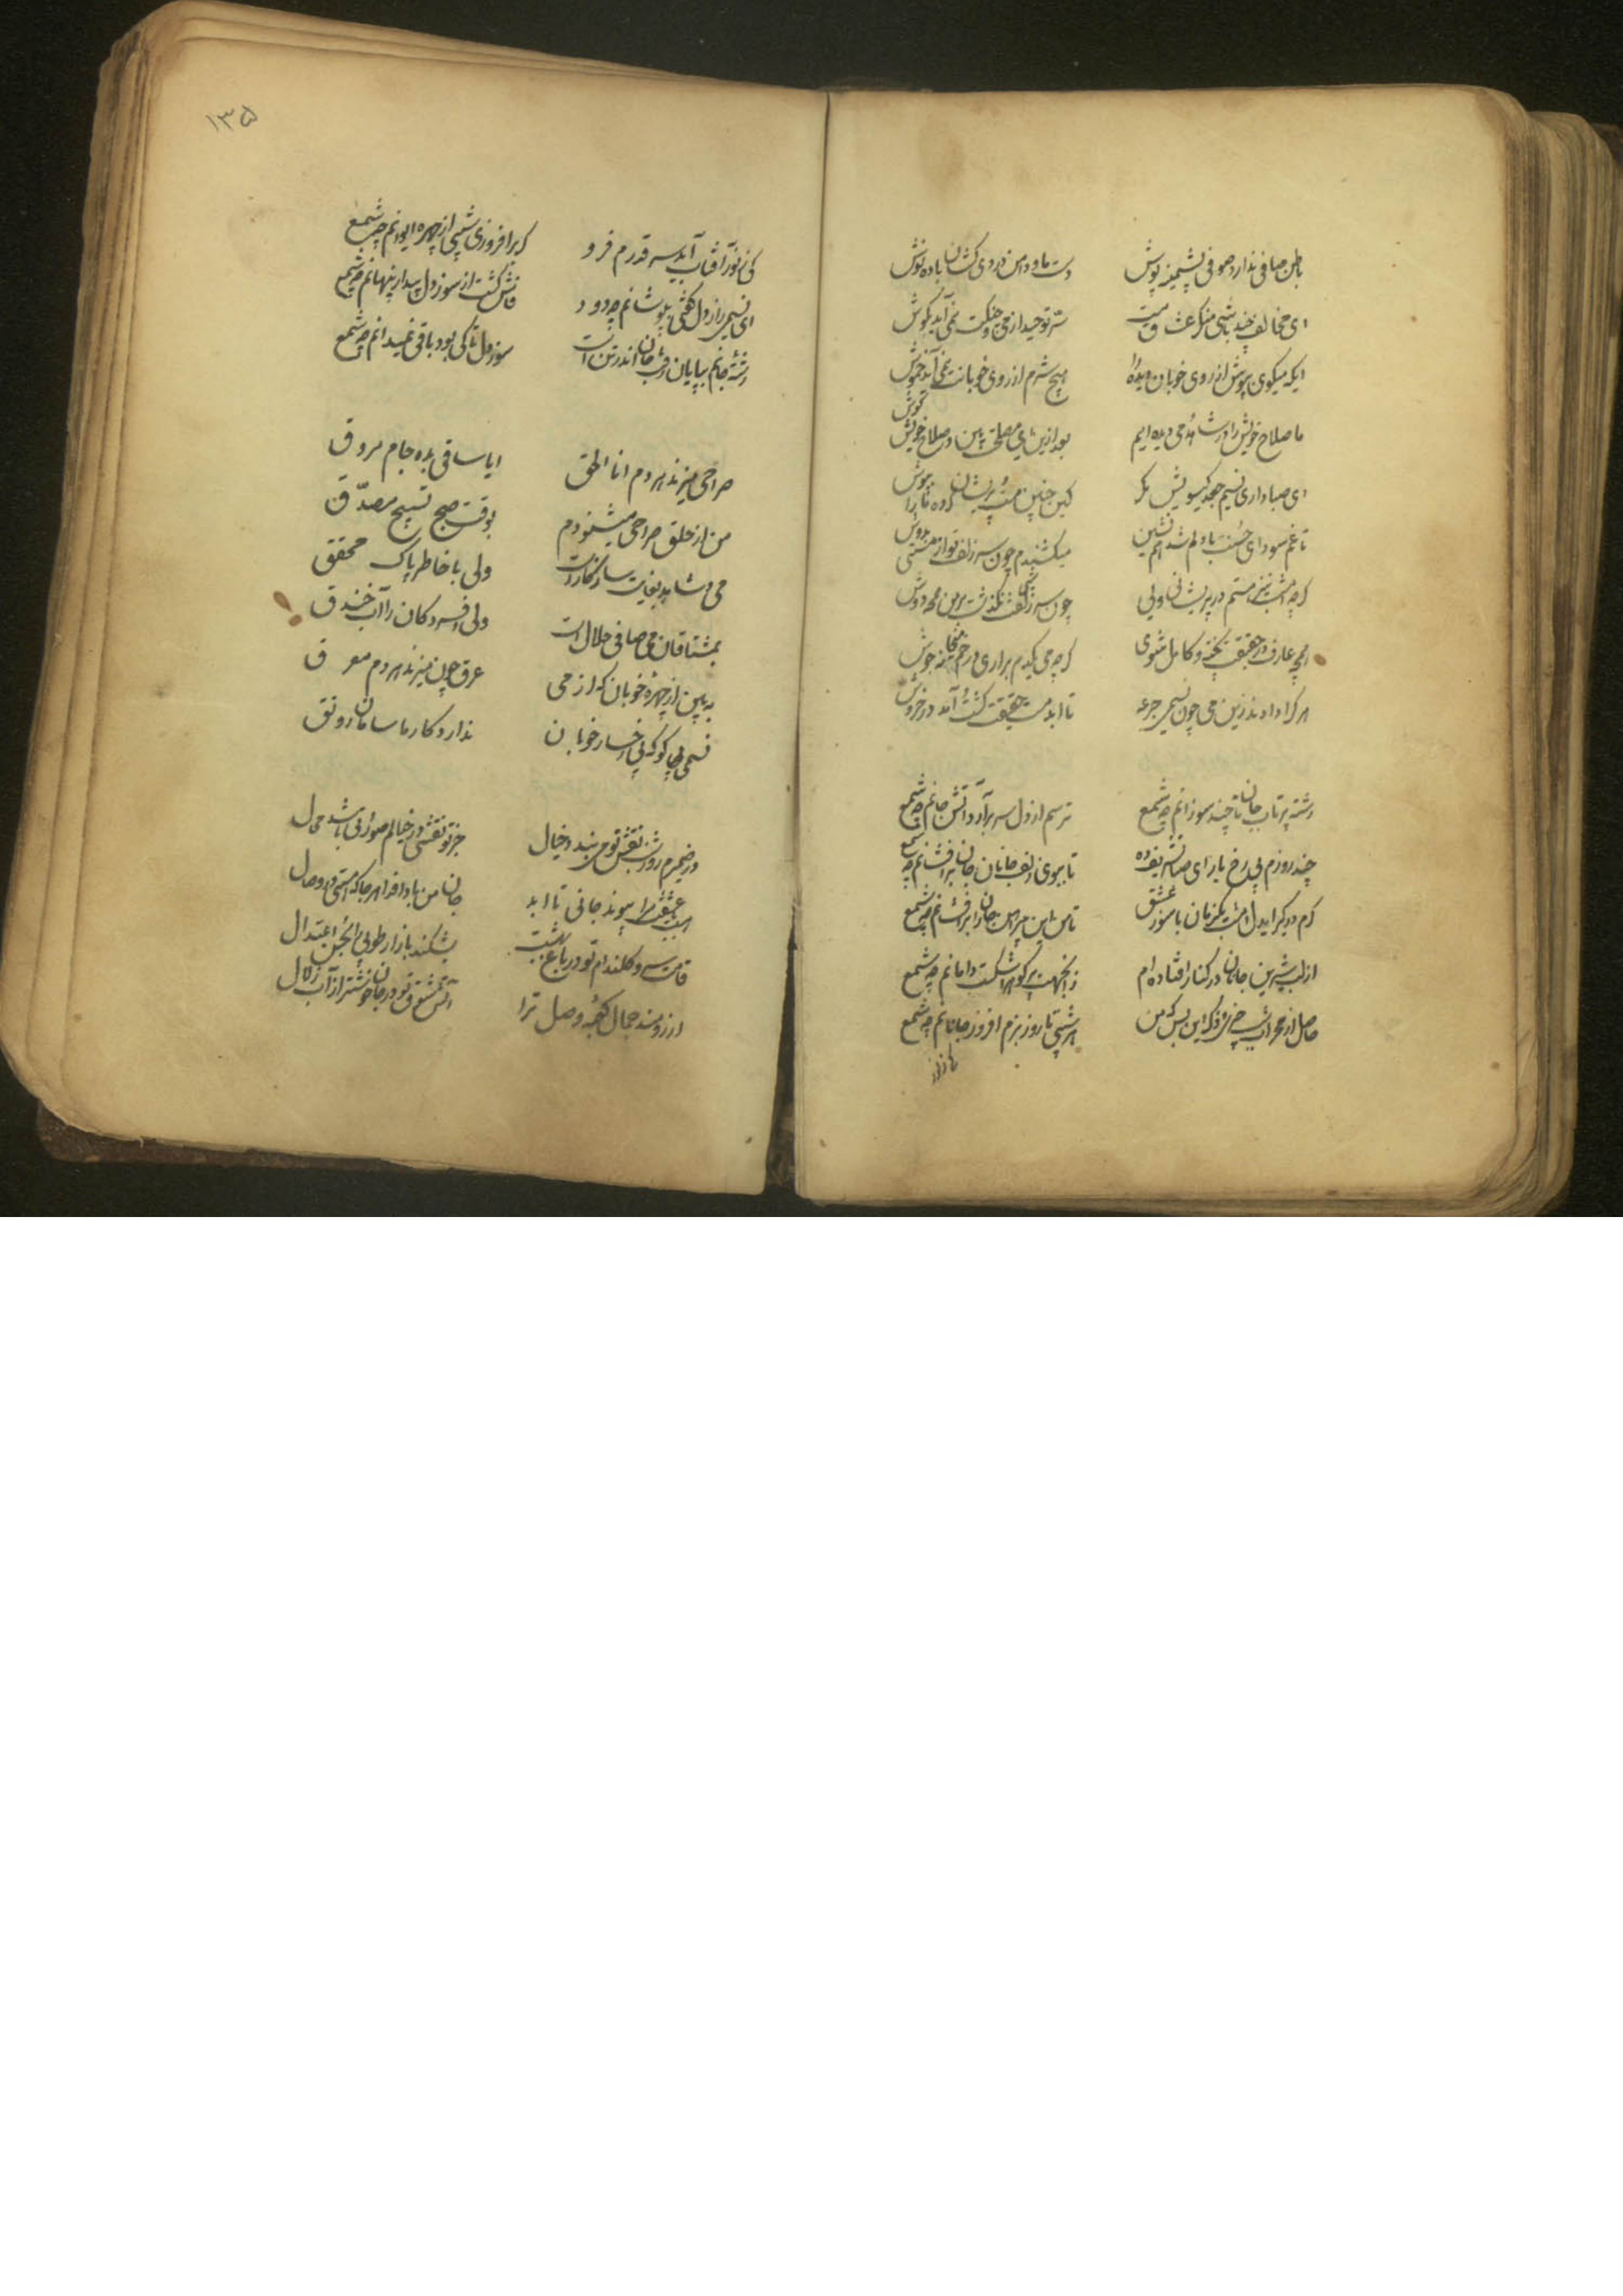 باطن صافی ندارد صوفی پشمینه پوش
دست ما و دامن دردی کشان باده نوش
ای مخالف چند باشی منکر عشاق مست
سر توحید از می و چنگت نمی آید بگوش
ایکه میگوی بپوش از روی خوبان دیده را
هیچ شرم از روی خوبانت نمی آید خموش
ما صلاح خویش را در شاهد و می دیده ایم
بعد ازین ای مصلحت بین در صلاح خویش کوش
ای صبا داری نسیم جعد گیسویش مگر
کین چنین مست و پریشان کرده ما را بهوش
تا غم سودای حسنت با دلم شد همنشین
میکشندم چون سر زلف تو از مستی بدوش
گرچه امشب نیز هستم در پریشانی ولی
چون سر زلفت نگذشت بر من همچو دوش
همچو عارف در حقیقت پخته و کامل شوی
گرچه می یکدم براری در خم میخانه جوش
هرکرا دادند زین می چون نسیمی جرعه
تا ابد مست حقیقت گشت آمد در خروش
رشته پرتاب جان تا چند سوزانم چو شمع
ترسم از دل سر برآرد آتش جانم چو شمع
چند روزم بی رخ یار ای صبا
تا ببوی زلف جانان جان برافشانم چو شمع
گرم دو گر ایدل امشب یکزمان با سوز عشق
تا من این پیراهن جان را برافشانم چو شمع
از لب شیرین جانان در کنار افتاده ام
زانجهت پر گوهر اشکست دامانم چو شمع
حاصل از محراب
هر شبی تا روز بزم افروز جانانم چو شمع
۱۳۵
کی ز نور آفتاب آید سر قدرم فرو
گر برافروزی شبی از چهره ایوانم چو شمع
ای نسیمی راز دل گفتی بپوشانم چو دود
فاش گشت از سوز دل پیدا و پنهانم چو شمع
رشته جانم بپایان رفت جان اندر تن است
سوز دل تا کی بود باقی نمیدانم چو شمع
صراحی میزند هر دم انا الحق
ایا ساقی بده جام مروق
من از حلق صراحی میشنودم
بوقت صبح تسبیح مصدق
می و شاهد بغایت سازگارست
ولی با خاطر پاک محقق
بمشتاقان می صافی حلال است
ولی افسردگان را آب خندق
به بین از چهره خوبان که از می
عرق چون میزند هر دم معرق
نسیمی که بی رخسار خوبان
ندارد کار ما سامان و رونق
در ضمیرم روز و شب نقش تو می بندد خیال
جز تو نقشی در خیالم صورتی باشد محال
هست عشقت مرا پیوند جانی تا ابد
جان من بادا فدا هر جا که هستی در وصال
قامت سرو گلندام تو در باغ بهشت
بشکند بازار طوبی را بحسن اعتدال
آرزومند جمال کعبه وصل ترا
آتش شوق تو در جان خوشتر از آب زلال